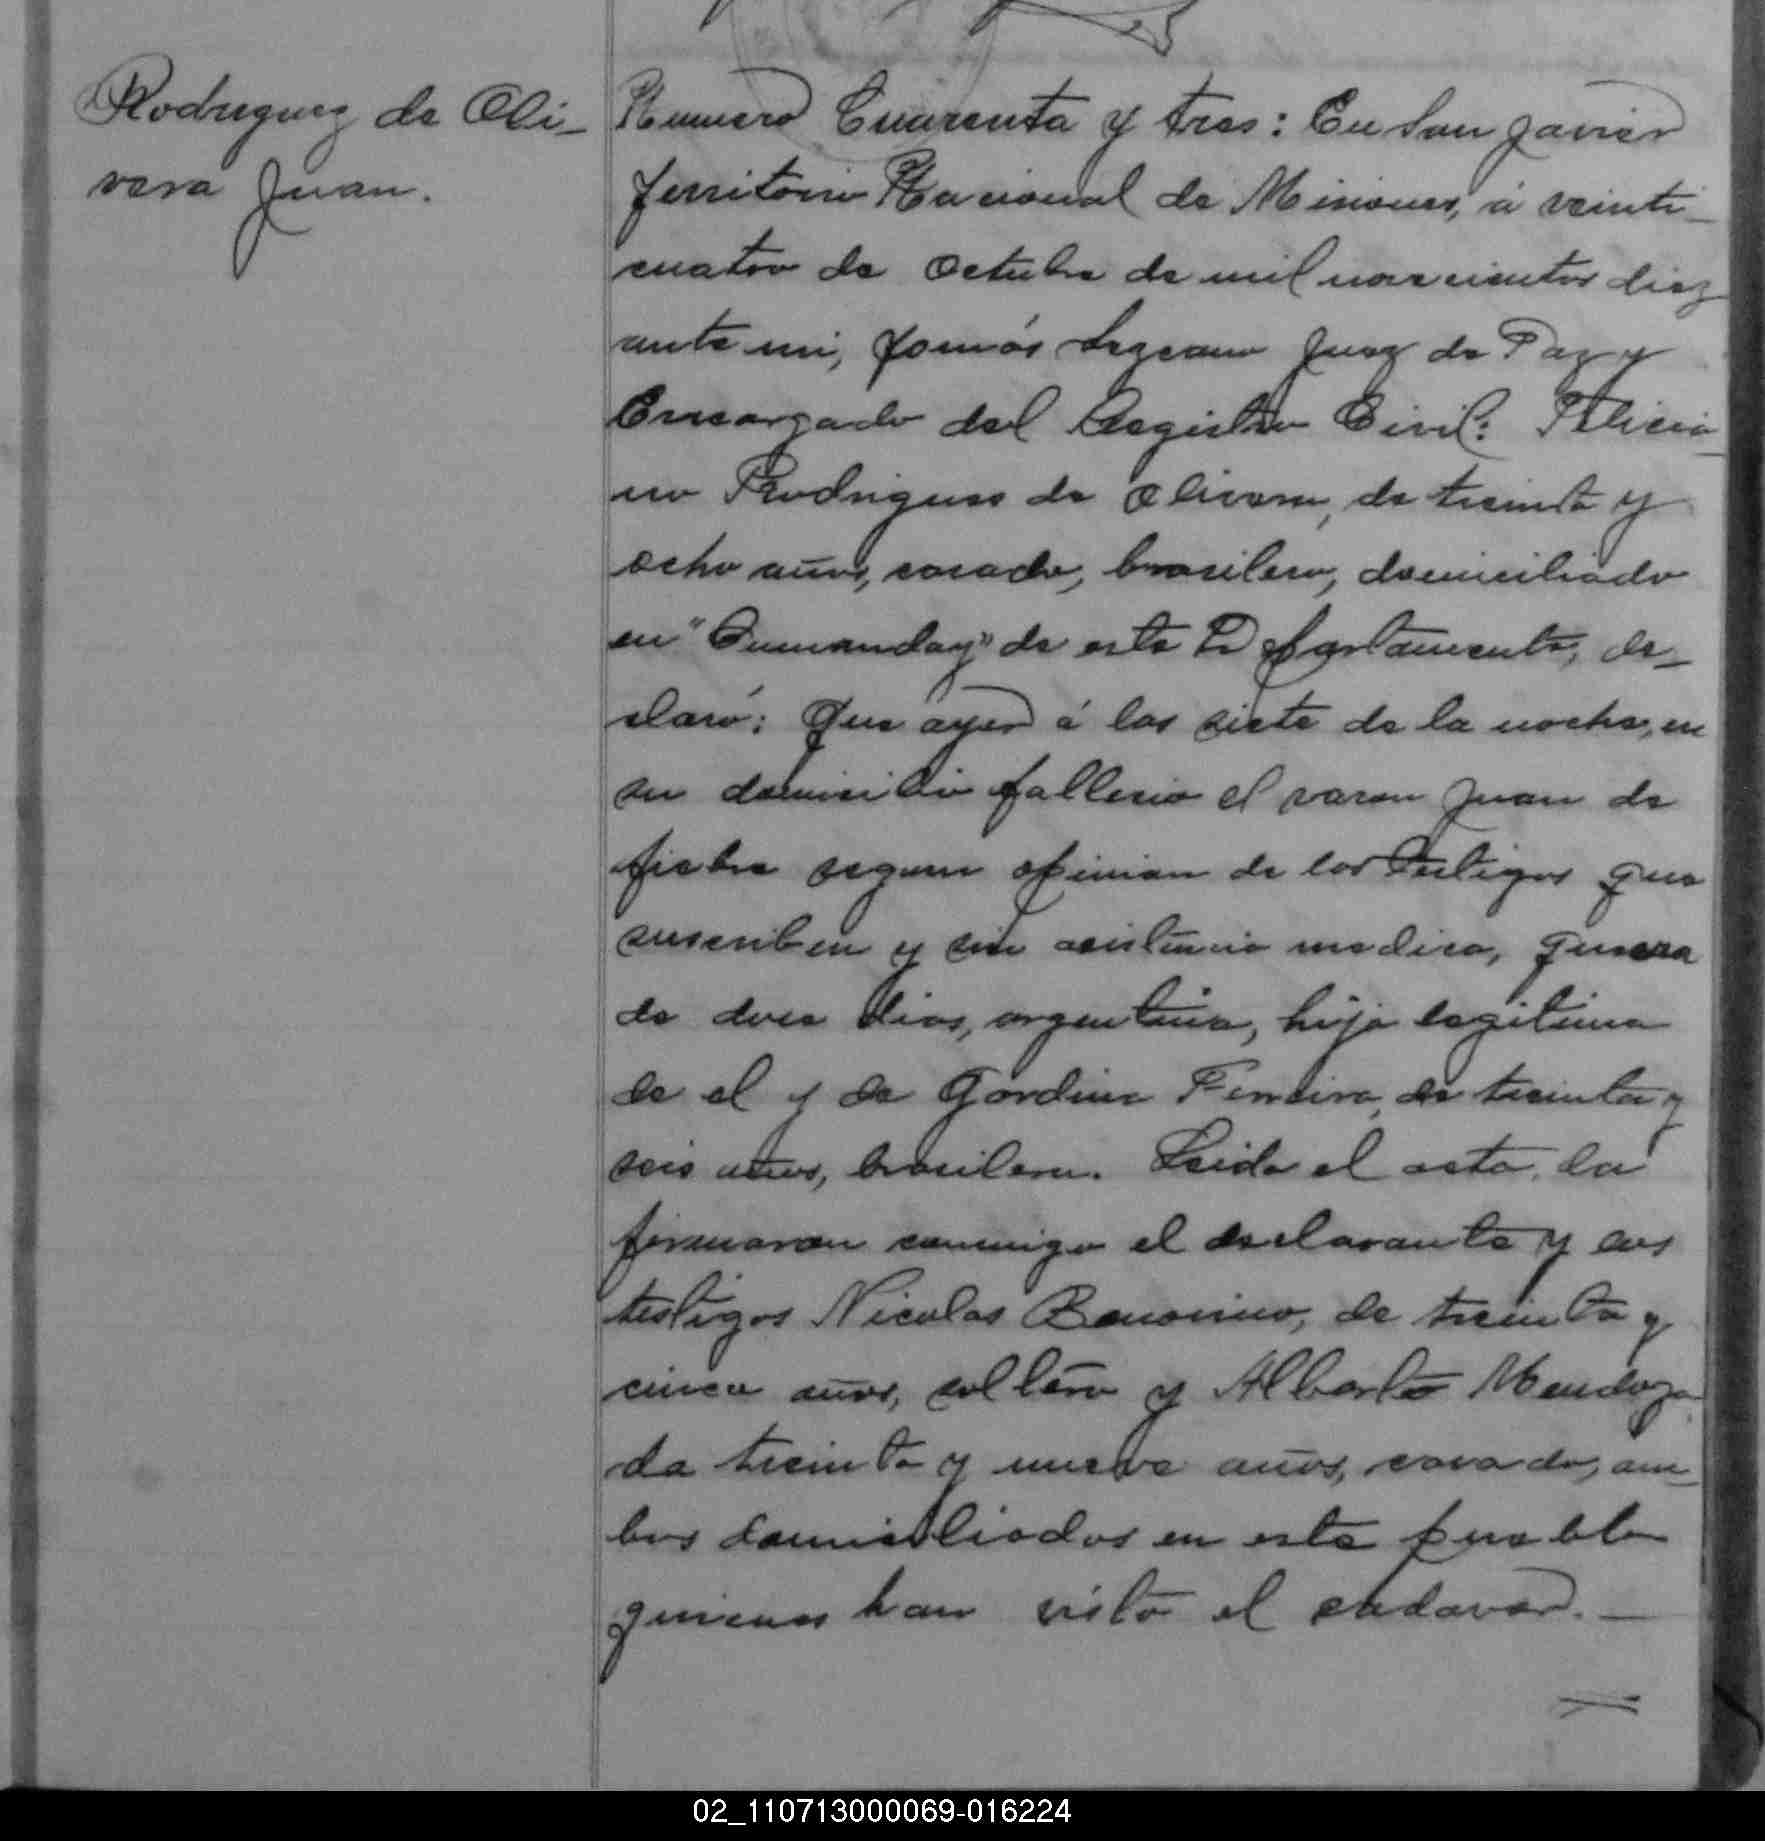 Rodriguez de Oli-
vera Juan.
Numero Cuarenta y tres: En San Javier
Territorio Nacional de Misiones, á veinti-
cuatro de Octubre de mil novecientos diez
ante mi, Tomás Lezcano Juez de Paz y
Encargado del Registro Civil: Felicia-
no Rodrigues de Olivera, de treinta y
ocho años, casado, brasilero, domiciliado
en "Cumanday" de este Departamento, de-
claró: Que ayer á las siete de la noche, en
su domicilio fallecio el varon Juan de
fiebre segun opinion de los testigos que
suscriben y sin asistencia medica, que era
de doce dias, argentino, hijo legitimo
de el y de Gordina Ferreira, de treinta y
seis años, brasilera. Leida el acta, la
firmaron conmigo el declarante y los
testigos Nicolas Bonomino, de treinta y
cinco años, soltero y Alberto Mendoza
de treinta y nueve años, casado, am-
bos domiciliados en este pueblo
quienes han visto el cadaver.—
02_110713000069-016224